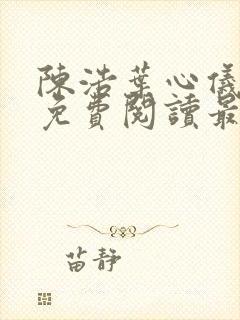 陳浩葉心儀
免費閱讀最
苗靜